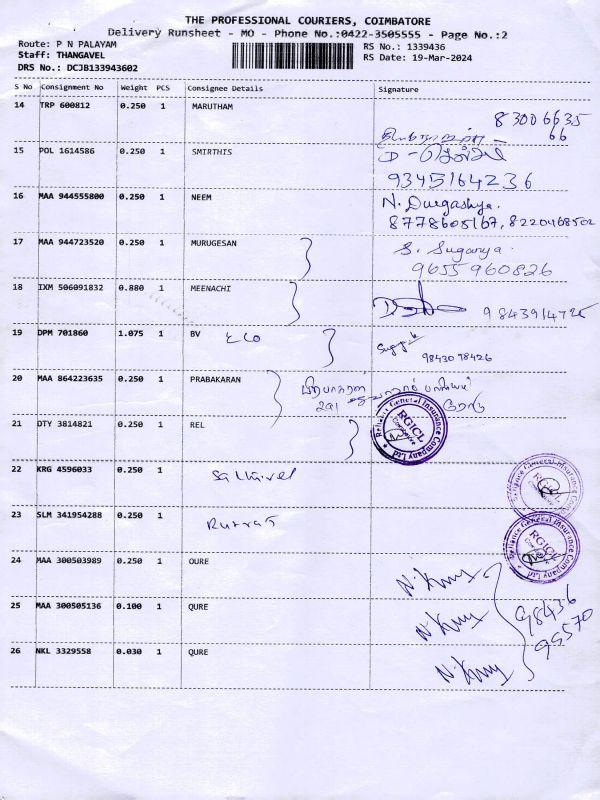 THE PROFESSIONAL COURIERS, COIMBATORE
Delivery Runsheet - MO - Phone No.:0422-3505555 - Page No.:2
Route: P N PALAYAM
Staff: THANGAVEL
DRS No.: DCJB133943602
RS No.: 1339436
RS Date: 19-Mar-2024
S No Consignment No Weight PCS Consignee Details Signature
14 TRP 600812 0.250 1 MARUTHAM
83006635
66
15 POL 1614586 0.250 1 SMIRTHIS
9345164236
16 MAA 944555800 0.250 1 NEEM N. Durgashya.
8778605167, 8220468502
17 MAA 944723520 0.250 1 MURUGESAN S. Suganya.
9655960826
18 IXM 506091832 0.880 1 MEENACHI 9843914725
19 DPM 701860 1.075 1 BV
9843098426
20 MAA 864223635 0.250 1 PRABAKARAN பிரபாகரன்
291
21 DTY 3814821 0.250 1 REL
Reliance General Insurance Company Ltd
RGICL
Coimbatore
22 KRG 4596033 0.250 1 Sakthivel
Reliance General Insurance
RGICL
23 SLM 341954288 0.250 1
Reliance General Insurance Company Ltd
RGICL
24 MAA 300503989 0.250 1 OURE
25 MAA 300505136 0.100 1 QURE 98436
95570
26 NKL 3329558 0.030 1 QURE